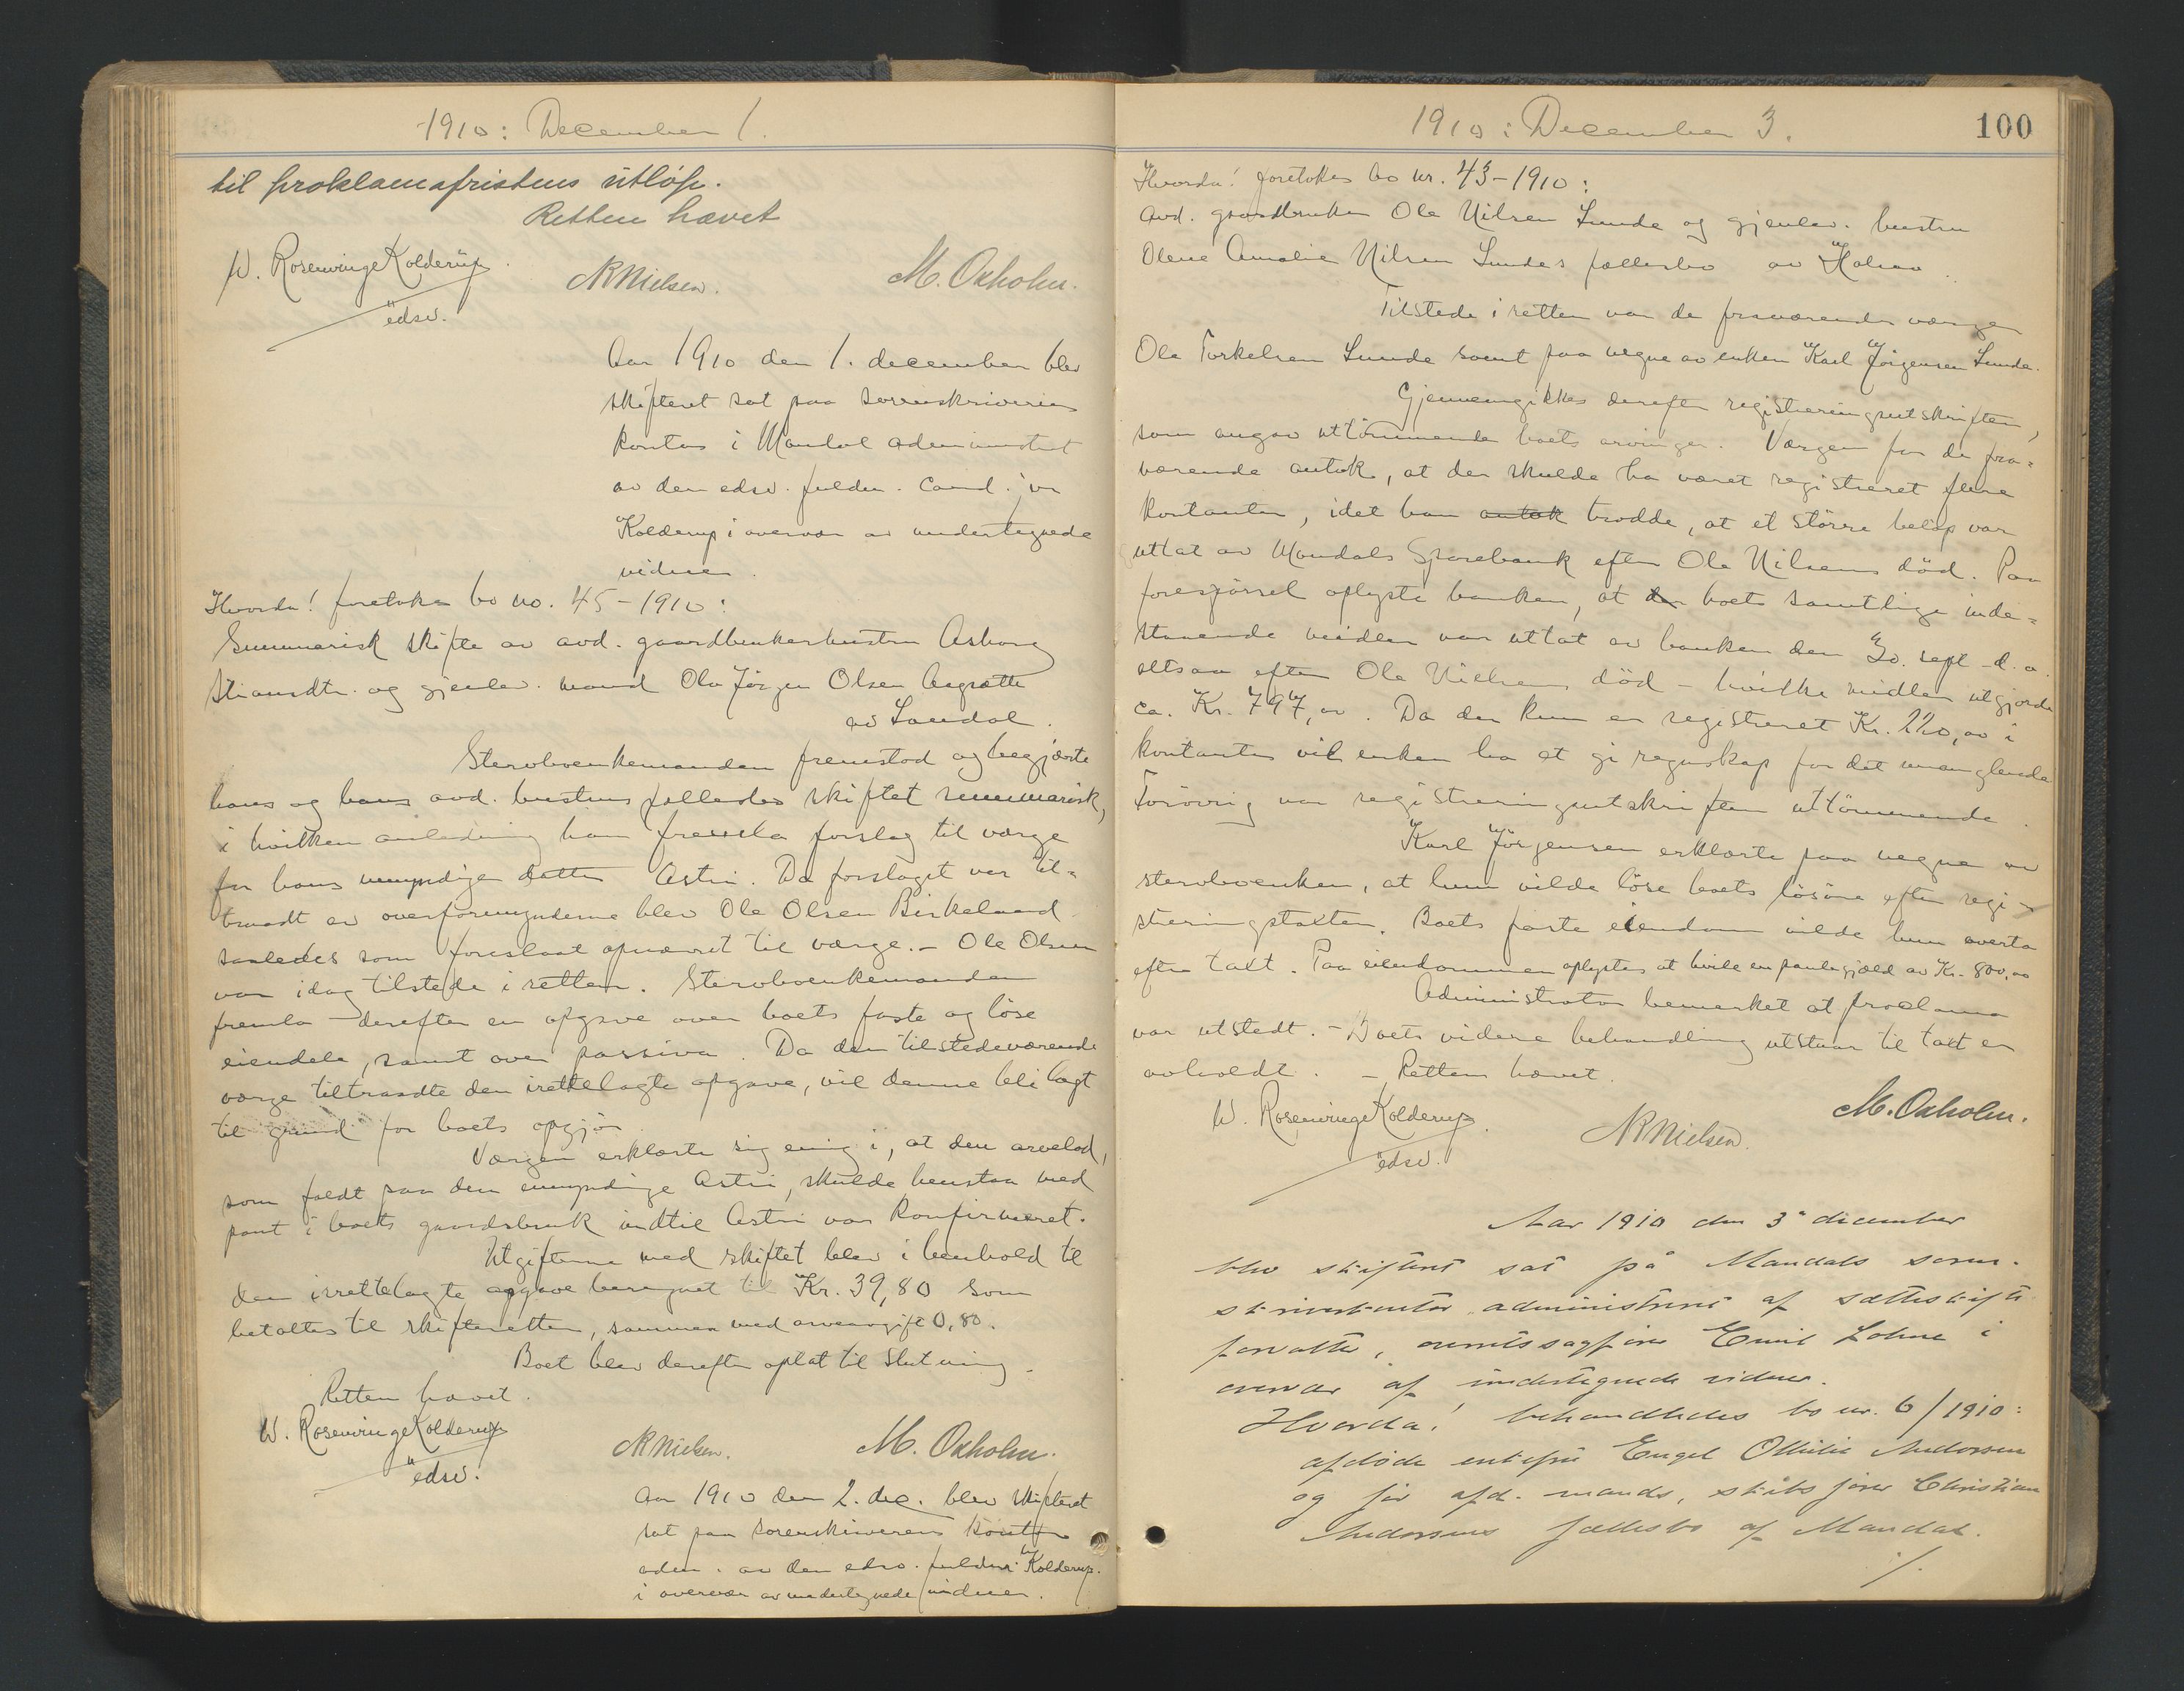 1910: December 1.
til proklamafristens utløp.
Retten hævet
W. Rosenvinge Kolderup.
edsv.
NKNielsen.
M. Oxholm.
Aar 1910 den 1. december blev
skifteret sat paa sorenskriverens
kontor i Mandal administrert
av den edsv. fuldm. cand. jur
Kolderup i overvær av undertegnede
vidner.
Hvorda! foretokes bo no. 45-1910:
Summarisk skifte av avd. gaardbrukerhustru Asborg
og gjenlev. mand Ola Jörgen Olsen
av Laudal.
Stervboenkemanden fremstod og begjærte
hans og hans avd. hustrus fællesbo skiftet summarisk,
i hvilken anledning han fremla forslag til værge
for hans umyndige datter Astri. Da forslaget var til-
traadt av overformynderne blev Ole Olsen Birkeland
saaledes som foreslaat opnævnt til værge. - Ole Olsen
var idag tilstede i retten. Stervboenkemanden
fremla derefter en opgave over boets faste og löse
eiendele, samt over passiva. Da den tilstedeværende
værge tiltraadte den irettelagte opgave, vil denne bli lagt
til grund for boets opgjör.
Værgen erklærte sig enig i, at den arvelod,
som faldt paa den umyndige Astri, skulde henstaa med
pant i boets gaardsbruk indtil Astri var konfirmeret.
Utgifterne med skiftet blev i henhold til
den irettelagte opgave beregnet til Kr. 39,80 som
betaltes til skifteretten, sammen med arveavgift 0,80.
Boet blev derefter oplat til slutning.
Retten hævet.
W. Rosenvinge Kolderup
edsv.
NKNielsen.
M. Oxholm.
Aar 1910 den 2. dec. blev skifteret
sat paa sorenskriverens kontor
adm. av den edsv. fuldm. Kolderup.
i overvær av undertegnede vidner.
1910: December 3.
100
Hvorda! foretokes bo nr. 43-1910:
avd. gaardbruker Ole Nilsen Lunde og gjenlev. hustru
Olene Amalie Nilsen Lundes fællesbo av Halsaa.
Tilstede i retten var de fraværendes værge
Ole Torkelsen Lunde samt paa vegne av enken Karl Jörgensen Lunde.
Gjennemgikkes derefter registreringsutskriften,
som angav uttömmende boets arvinger. Værgen for de fra-
værende antok, at der skulde ha været registreret flere
kontanter, idet han antok trodde, at et större belöp var
uttat av Mandals Sparebank efter Ole Nilsens död. Paa
forespörsel oplyste banken, at den boets samtlige inde-
staaende midler var uttat av banken den 30. sept. d.a.
altsaa efter Ole Nielsens död - hvilke midler utgjorde
ca. Kr. 797,00. Da der kun er registreret Kr. 220,00 i
kontanter vil enken ha at gi regnskap for det manglende
Forövrig var registreringsutskriften uttömmende.
Karl Jörgensen erklærte paa vegne av
stervboenken, at hun vilde löse boets lösöre efter regi-
streringstaxten. Boets faste eiendom vilde hun overta
efter taxt. Paa eiendommen oplystes at hvile en pantegjæld av Kr. 800,00
Administrator bemerket at proclama
var utstedt. - Boets videre behandling utstaar til taxt er
avholdt. - Retten hævet.
W. Rosenvinge Kolderup.
edsv.
NKNielsen.
M. Oxholm.
Aar 1910 den 3" december
blev skifteret sat på Mandals soren-
skriverkontor administreret af sætteskifte
forvalter, overretssagförer Emil Lohne i
overvær af undertegnede vidner.
Hvorda! behandledes bo nr. 6/1910:
afdöde enkefru Engel Othilie Andorsen
og för afd. mands, skibsförer Christian
Andorsens fællesbo af Mandal.
/.